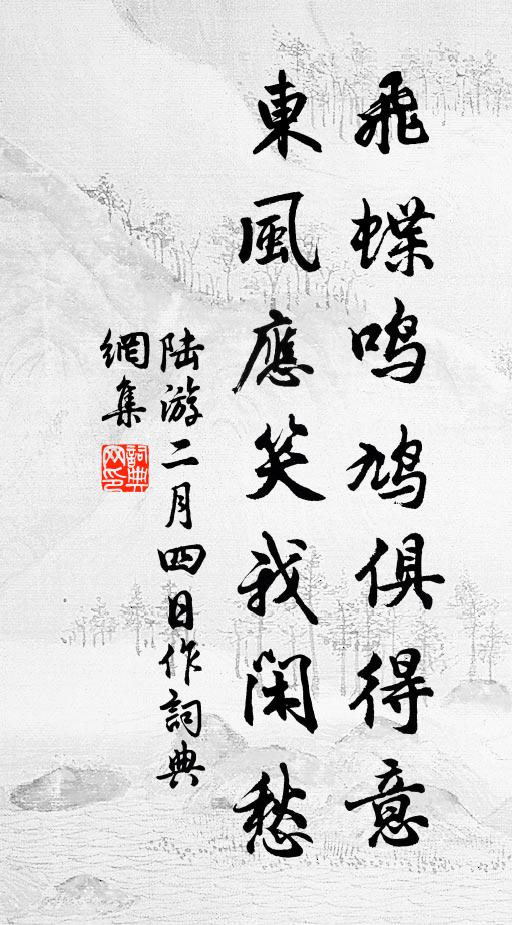 飛蝶鸣鸠俱得意
東風應笑我閑愁
陆游二月四日作詞典
網集
詞典網印